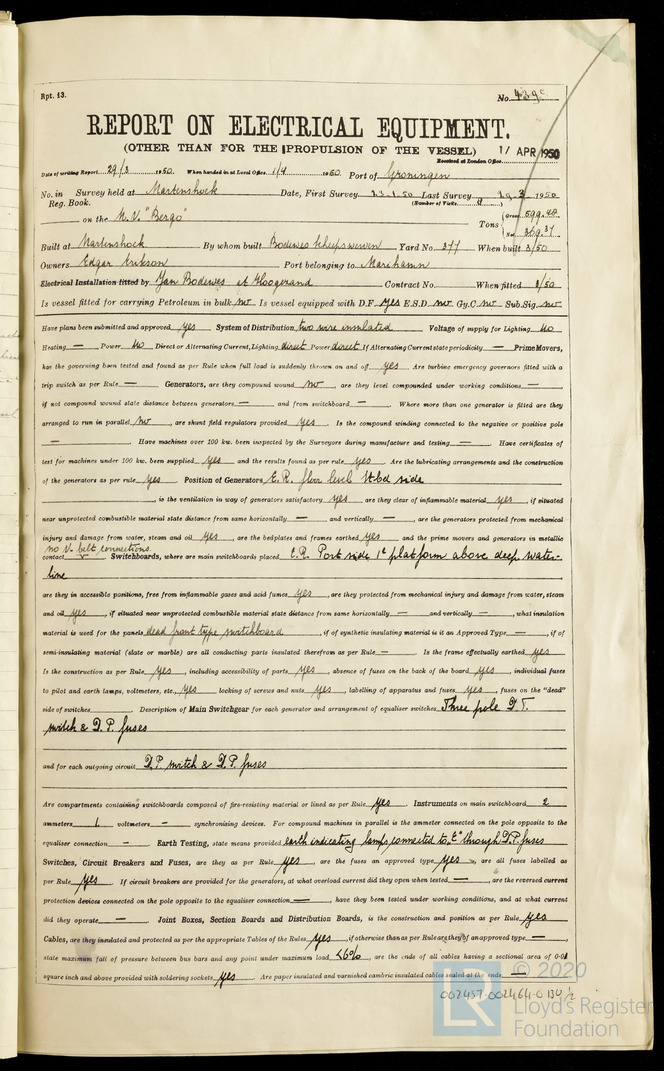 Rpt. 13.
No. 439
REPORT ON ELECTRICAL EQUIPMENT.
(OTHER THAN FOR THE PROPULSION OF THE VESSEL) 17 APR 1950
Received at London Office
Date of writing Report 29/3 1950. When handed in at Local Office 1/4 1950 Port of Groningen
No. in Survey held at Martenshoek Date, First Survey 23.1.50 Last Survey 29.3 1950
Reg. Book. (Number of Visits )
on the M.V. "Bergö" Tons { Gross 599.48
Net 369.37
Built at Martenshoek By whom built Bodewes Scheepswerven Yard No. 377 When built 3/50
Owners Edgar Erikson Port belonging to Mariehamn
Electrical Installation fitted by Jan Bodewes at Hoogezand Contract No. When fitted 3/50
Is vessel fitted for carrying Petroleum in bulk no Is vessel equipped with D.F. yes E.S.D. no Gy.C. no Sub.Sig. no
Have plans been submitted and approved yes System of Distribution two wire insulated Voltage of supply for Lighting 110
Heating — Power 110 Direct or Alternating Current, Lighting direct Power direct If Alternating Current state periodicity — Prime Movers,
has the governing been tested and found as per Rule when full load is suddenly thrown on and off yes Are turbine emergency governors fitted with a
trip switch as per Rule — Generators, are they compound wound no, are they level compounded under working conditions —,
if not compound wound state distance between generators — and from switchboard —. Where more than one generator is fitted are they
arranged to run in parallel no, are shunt field regulators provided yes. Is the compound winding connected to the negative or positive pole
—. Have machines over 100 kw. been inspected by the Surveyors during manufacture and testing —. Have certificates of
test for machines under 100 kw. been supplied yes and the results found as per rule yes. Are the lubricating arrangements and the construction
of the generators as per rule yes. Position of Generators E.R. floor level Stbd side
, is the ventilation in way of generators satisfactory yes, are they clear of inflammable material yes, if situated
near unprotected combustible material state distance from same horizontally — and vertically —, are the generators protected from mechanical
injury and damage from water, steam and oil yes, are the bedplates and frames earthed yes and the prime movers and generators in metallic
no V-belt connections.
contact Switchboards, where are main switchboards placed E.R. Port side 1e platform above deep water-
line
are they in accessible positions, free from inflammable gases and acid fumes yes, are they protected from mechanical injury and damage from water, steam
and oil yes, if situated near unprotected combustible material state distance from same horizontally — and vertically —, what insulation
material is used for the panels dead front type switchboard, if of synthetic insulating material is it an Approved Type —, if of
semi-insulating material (slate or marble) are all conducting parts insulated therefrom as per Rule —. Is the frame effectually earthed yes
Is the construction as per Rule yes, including accessibility of parts yes, absence of fuses on the back of the board yes, individual fuses
to pilot and earth lamps, voltmeters, etc. yes locking of screws and nuts yes, labelling of apparatus and fuses yes, fuses on the "dead"
side of switches. Description of Main Switchgear for each generator and arrangement of equaliser switches Three pole D.T.
switch & D.P. fuses
and for each outgoing circuit D.P. switch & D.P. fuses
Are compartments containing switchboards composed of fire-resisting material or lined as per Rule yes. Instruments on main switchboard 2
ammeters 1 voltmeters — synchronising devices. For compound machines in parallel is the ammeter connected on the pole opposite to the
equaliser connection —. Earth Testing, state means provided earth indicating lamps connected to "E" through D.P. fuses
Switches, Circuit Breakers and Fuses, are they as per Rule yes, are the fuses an approved type yes, are all fuses labelled as
per Rule yes. If circuit breakers are provided for the generators, at what overload current did they open when tested —, are the reversed current
protection devices connected on the pole opposite to the equaliser connection —, have they been tested under working conditions, and at what current
did they operate —. Joint Boxes, Section Boards and Distribution Boards, is the construction and position as per Rule yes
Cables, are they insulated and protected as per the appropriate Tables of the Rules yes, if otherwise than as per Rule are they of an approved type —,
state maximum fall of pressure between bus bars and any point under maximum load <6%, are the ends of all cables having a sectional area of 0·01
square inch and above provided with soldering sockets yes. Are paper insulated and varnished cambric insulated cables sealed at the ends —
© 2020
002457-002464-0134 1/2
LR
Lloyd's Register
Foundation